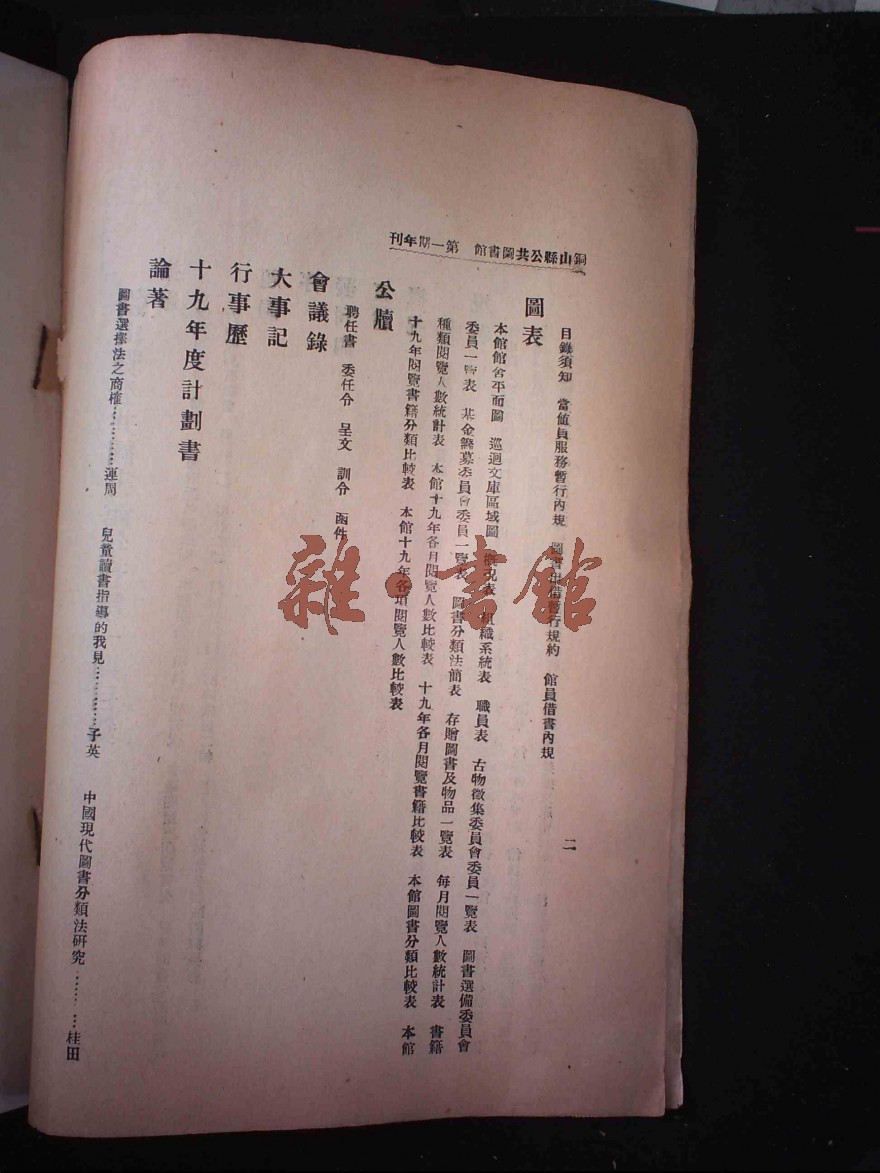 銅山縣公共圖書館　第一期年刊
目錄須知　當值員服務暫行內規　圖書拙借暫行規約　館員借書內規
二
圖表
本館館舍平面圖　巡迴文庫區域圖　概況表　組織系統表　職員表　古物徵集委員會委員一覽表　圖書選備委員會
委員一覽表　基金籌募委員會委員一覽表　圖書分類法簡表　存贈圖書及物品一覽表　每月閱覽人數統計表　書籍
種類閱覽人數統計表　本館十九年各月閱覽人數比較表　十九年各月閱覽書籍比較表　本館圖書分類比較表　本館
十九年閱覽書籍分類比較表　本館十九年各項閱覽人數比較表
公牘
聘任書　委任令　呈文　訓令　函件
會議錄
大事記
行事歷
十九年度計劃書
論著
圖書選擇法之商榷…………連周　兒童讀書指導的我見…………子英　中國現代圖書分類法研究…………桂田
雜·書館